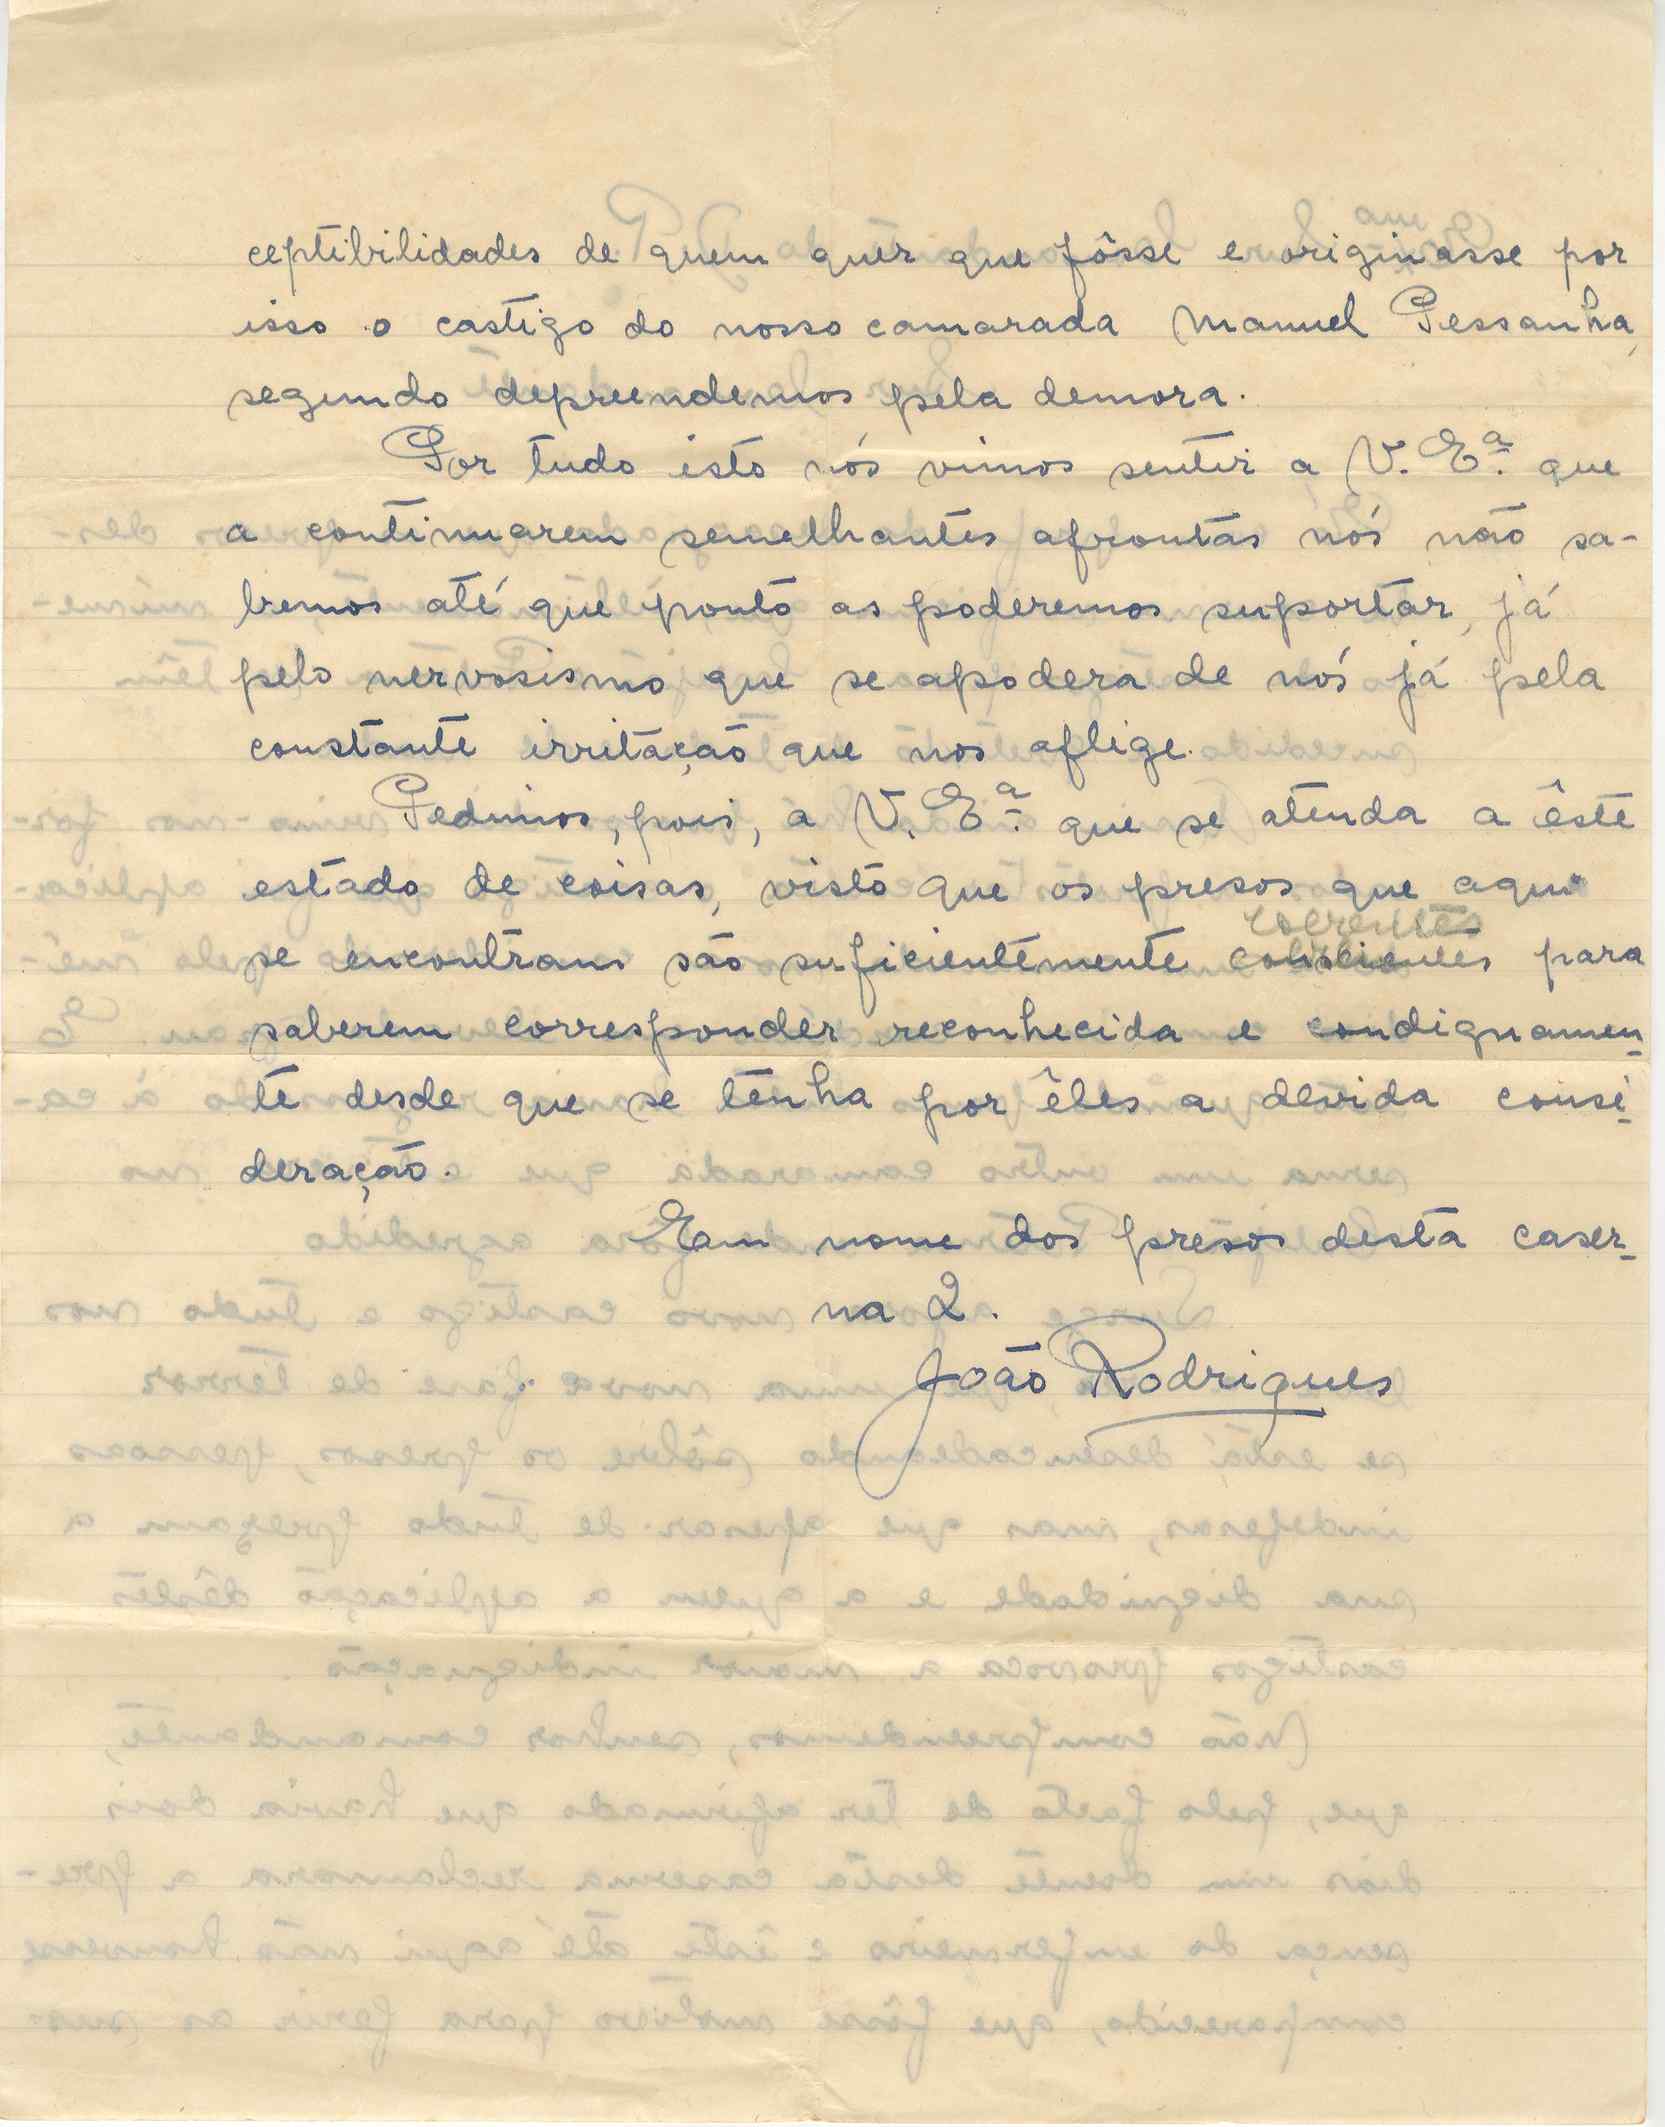 ceptibilidades de quem quer que fôsse e originasse por
isso o castigo do nosso camarada Manuel Pessanha,
segundo depreendemos pela demora.
Por tudo isto nós vimos sentir a V. Eª. que
a continuarem semelhantes afrontas nós não sa-
bremos até que ponto as poderemos suportar, já
pelo nervosismo que se apodera de nós já pela
constante irritação que nos aflige.
Pedimos, pois, a V. Eª. que se atenda a êste
estado de coisas, visto que os presos que aqui
coerentes
se encontram são suficientemente conscientes para
saberem corresponder reconhecida e condignamen-
te desde que se tenha por êles a devida consi-
deração.
Em nome dos presos desta caser-
na 2.
João Rodrigues